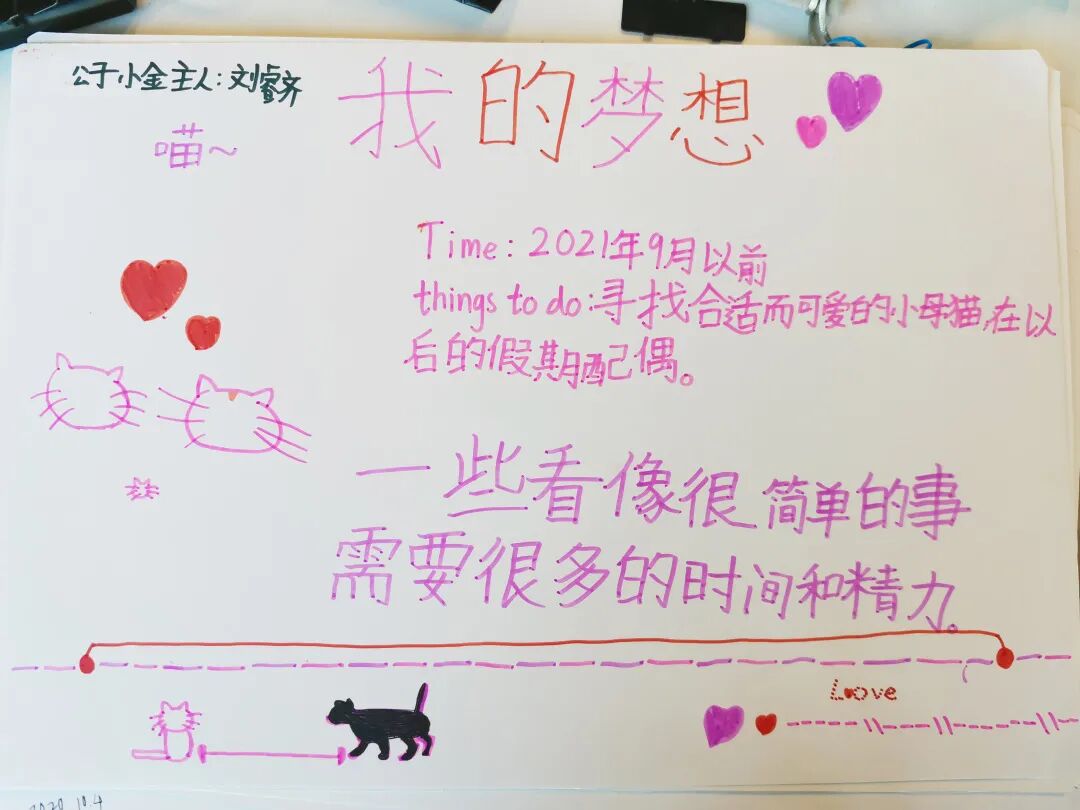 公子小金主人:刘睿齐
我的梦想
喵~
Time: 2021年9月以前
things to do:寻找合适而可爱的小母猫,在以
后的假期配偶。
一些看像很简单的事
需要很多的时间和精力。
Love
2020.10.4